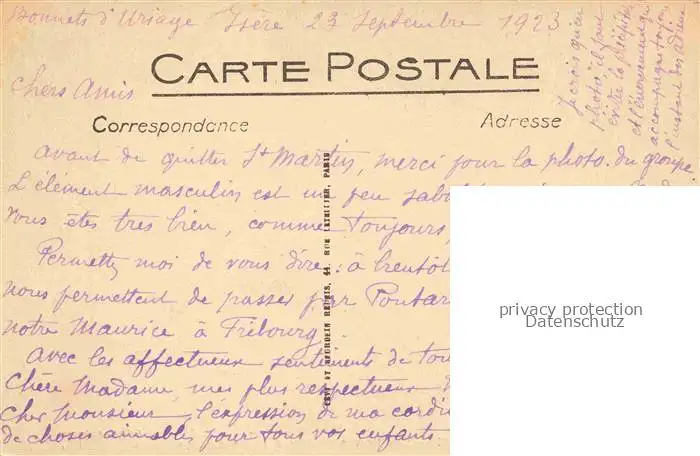 Bonnets d'Uriage Isère 23 Septembre 1923
CARTE POSTALE
Chers Amis
Correspondance
Adresse
Avant de quitter St Martin, merci pour la photo. du groupe
L'élément masculin est un peu
vous êtes très bien, comme toujours,
Permettez moi de vous dire: à bientôt
nous permettent de passer par Pontar
notre Maurice à Fribourg.
Avec les affectueux sentiments de tou
Chère Madame, mes plus respectueux
Cher Monsieur, l'expression de ma cordi
de choses aimables pour tous vos enfants.
Je crois qu'en
photo, il faut
et l'énervement qui
accompagne toujours
l'instant des adieux
LEVY ET NEURDEIN REUNIS, 44, RUE LETELLIER, PARIS
privacy protection
Datenschutz